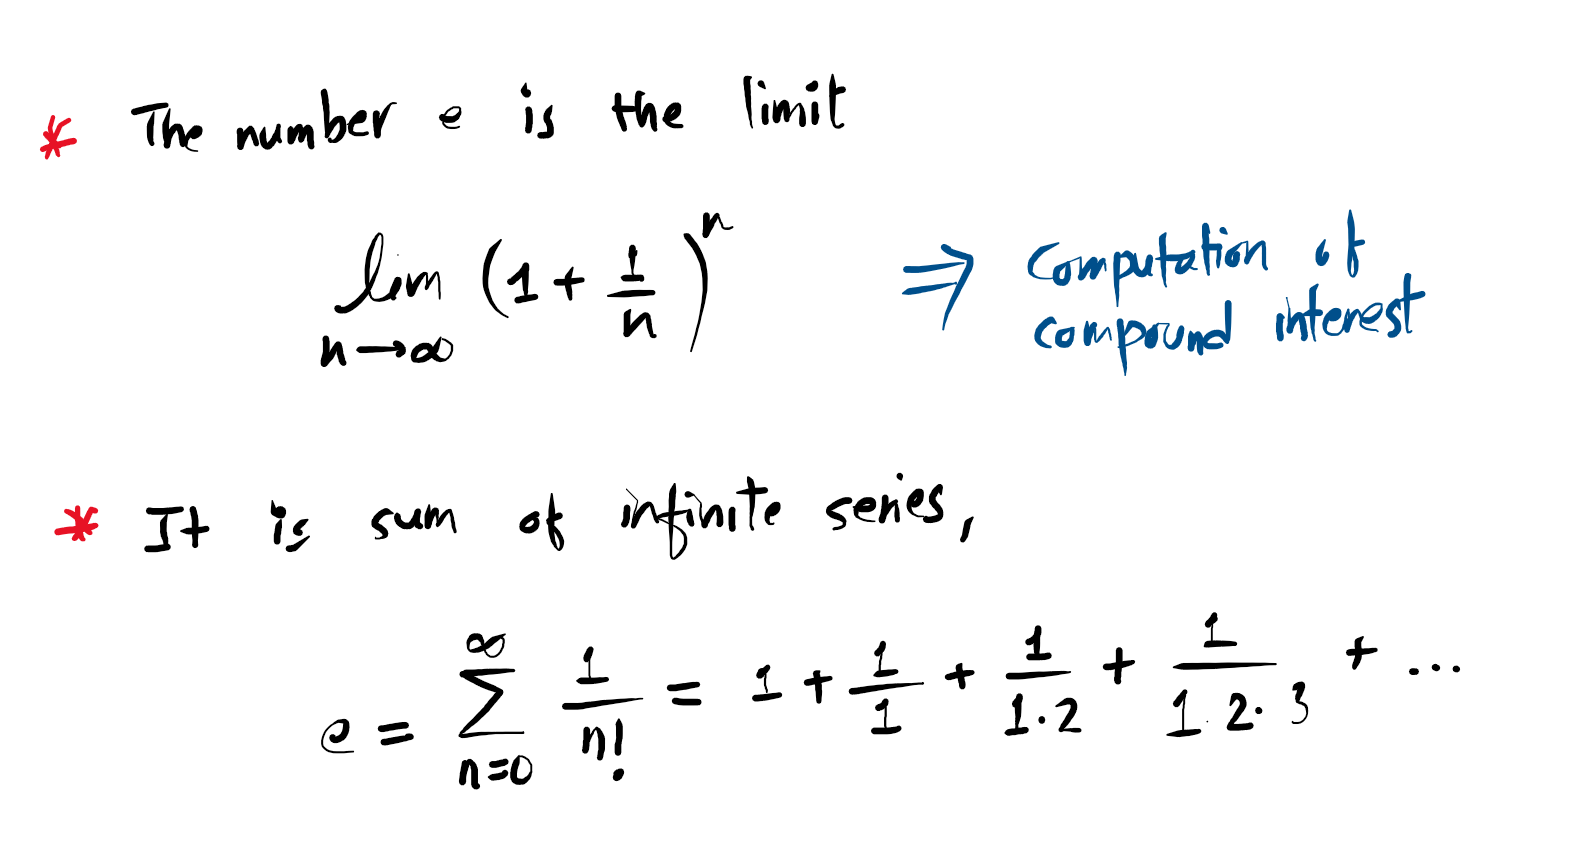 * The number e is the limit
lim n→∞ (1 + 1/n)^n ⇒ Computation of
compound interest
* It is sum of infinite series,
e = ∑_{n=0}^{∞} 1/n! = 1 + 1/1 + 1/1·2 + 1/1·2·3 + ...